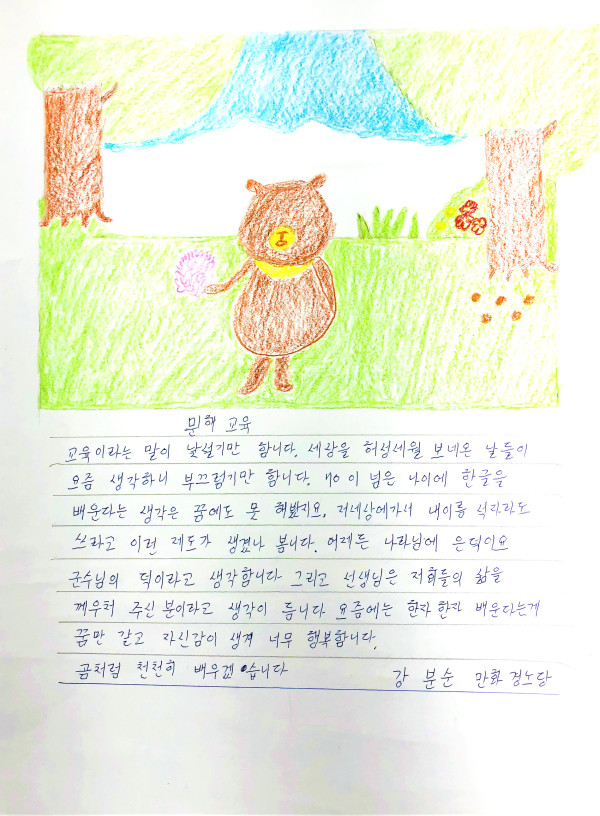 문해 교육
교육이라는 말이 낯설기만 합니다. 세상을 허성세월 보네온 날들이
요즘 생각하니 부끄럽기만 합니다. 70이 넘은 나이에 한글을
배운다는 생각은 꿈에도 못 해봤지요. 저세상에가서 내이름 석자라도
쓰라고 이런 제도가 생겼나 봅니다. 어께든 나라님에 은덕이요
군수님의 덕이라고 생각합니다 그리고 선생님은 저희들의 삶을
께우처 주신분이라고 생각이 듭니다 요즘에는 한자한자 배운다는게
꿈만 갈고 자신감이 생겨 너무 행복합니다.
곰처럼 천천히 배우겠습니다
강분순 만화경노당